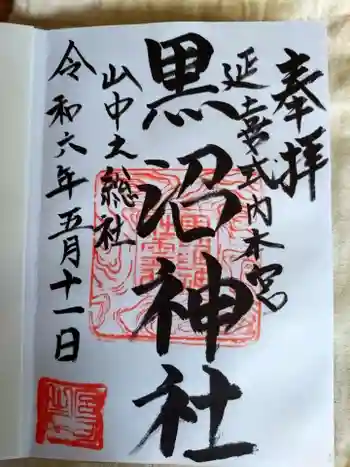 奉拝
延喜式内本宮
黒沼神社
山中之總社
令和六年五月十一日